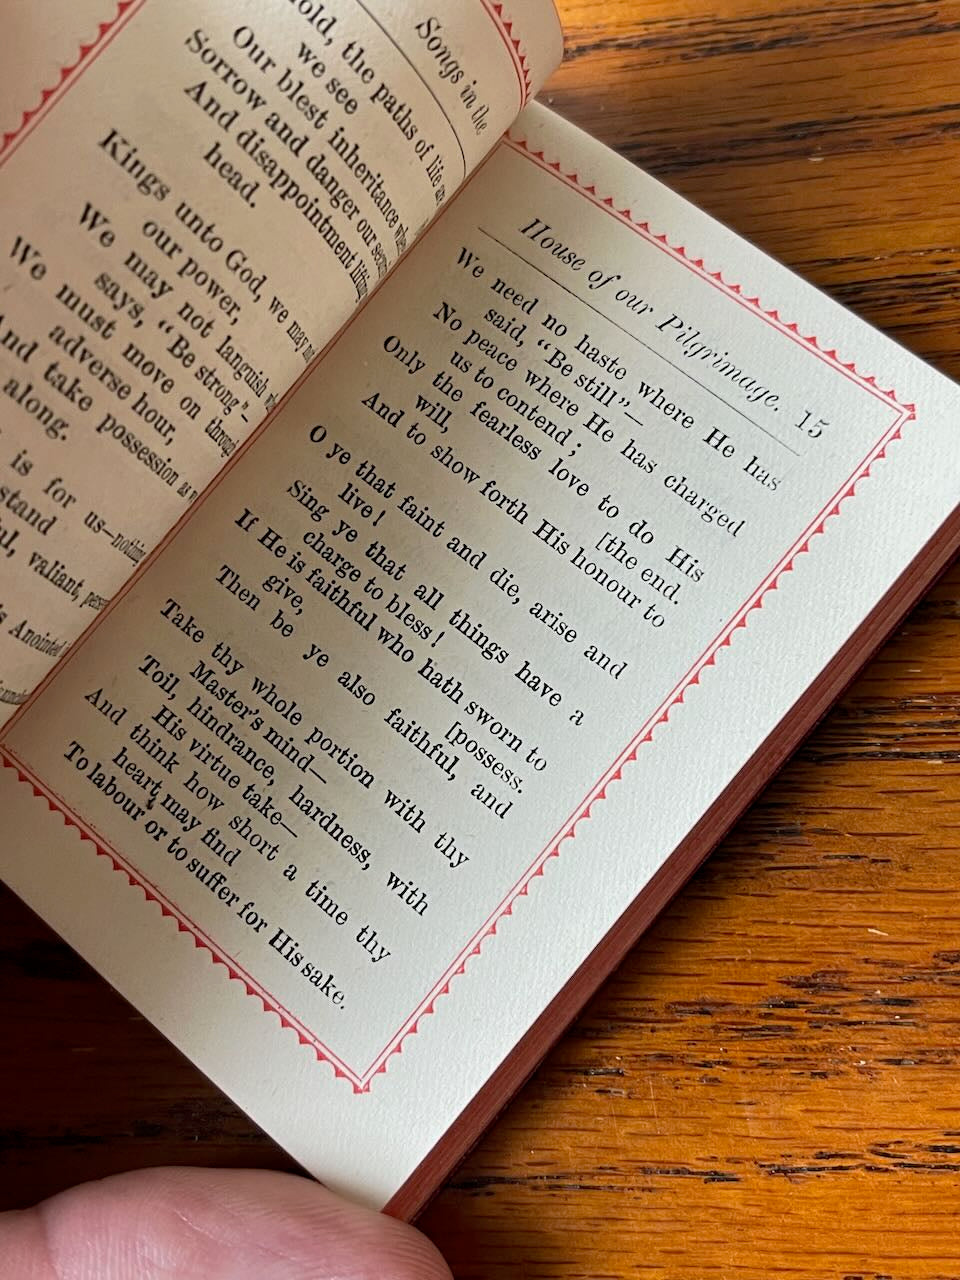 Songs in the
old, the paths of life are
we see
Our blest inheritance where
Sorrow and danger our
And disappointment lifting
head.
Kings unto God, we may not
our power,
We may not languish
says, “Be strong”—
We must move on through
adverse hour,
And take possession as
along.
is for us—nothing
stand
valiant,
Anointed
House of our Pilgrimage. 15
We need no haste where He has
said, “Be still”—
No peace where He has charged
us to contend;
Only the fearless love to do His
will, [the end.
And to show forth His honour to
O ye that faint and die, arise and
live!
Sing ye that all things have a
charge to bless!
If He is faithful who hath sworn to
give, [possess.
Then be ye also faithful, and
Take thy whole portion with thy
Master's mind—
Toil, hindrance, hardness, with
His virtue take—
And think how short a time thy
heart may find
To labour or to suffer for His sake.